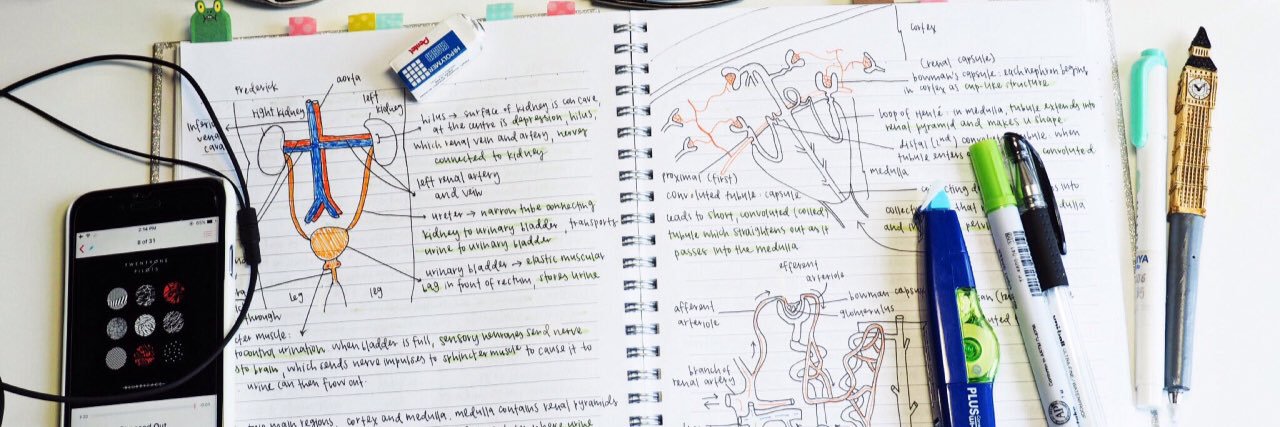 Frederick
aorta
right kidney
left
kidney
hilus → surface of kidney is concave,
at the centre is depression, hilus,
which renal vein and artery, nerves
connected to kidney
left renal artery
and vein
ureter → narrow tube connecting
kidney to urinary bladder, transports
urine to urinary bladder
urinary bladder → elastic muscular
bag in front of rectum, stores urine
leg
leg
through
muscle:
control urination. when bladder is full, sensory neurones send nerve
to brain, which sends nerve impulses to sphincter muscle to cause it to
urine can then flow out.
main regions, cortex and medulla. medulla contains renal pyramids
where urine
Pentel
HI-POLYMER
2:14 PM
8 of 31
TWENTY ONE
PILOTS
BLURRYFACE
cortex
(renal capsule)
bowman's capsule: each nephron begins
in cortex as cup-like structure.
loop of Henlé: in medulla, tubule extends into
renal pyramid and makes u shape
distal (2nd)
tubule. when
tubule enters
convoluted
medulla
proximal (first)
convoluted tubule: capsule
leads to short, convoluted (coiled)
tubule which straightens out as it
passes into the medulla
into
that
medulla
and
efferent
arteriole
afferent
arteriole
bowman
glomerulus
branch of
renal artery
PLUS